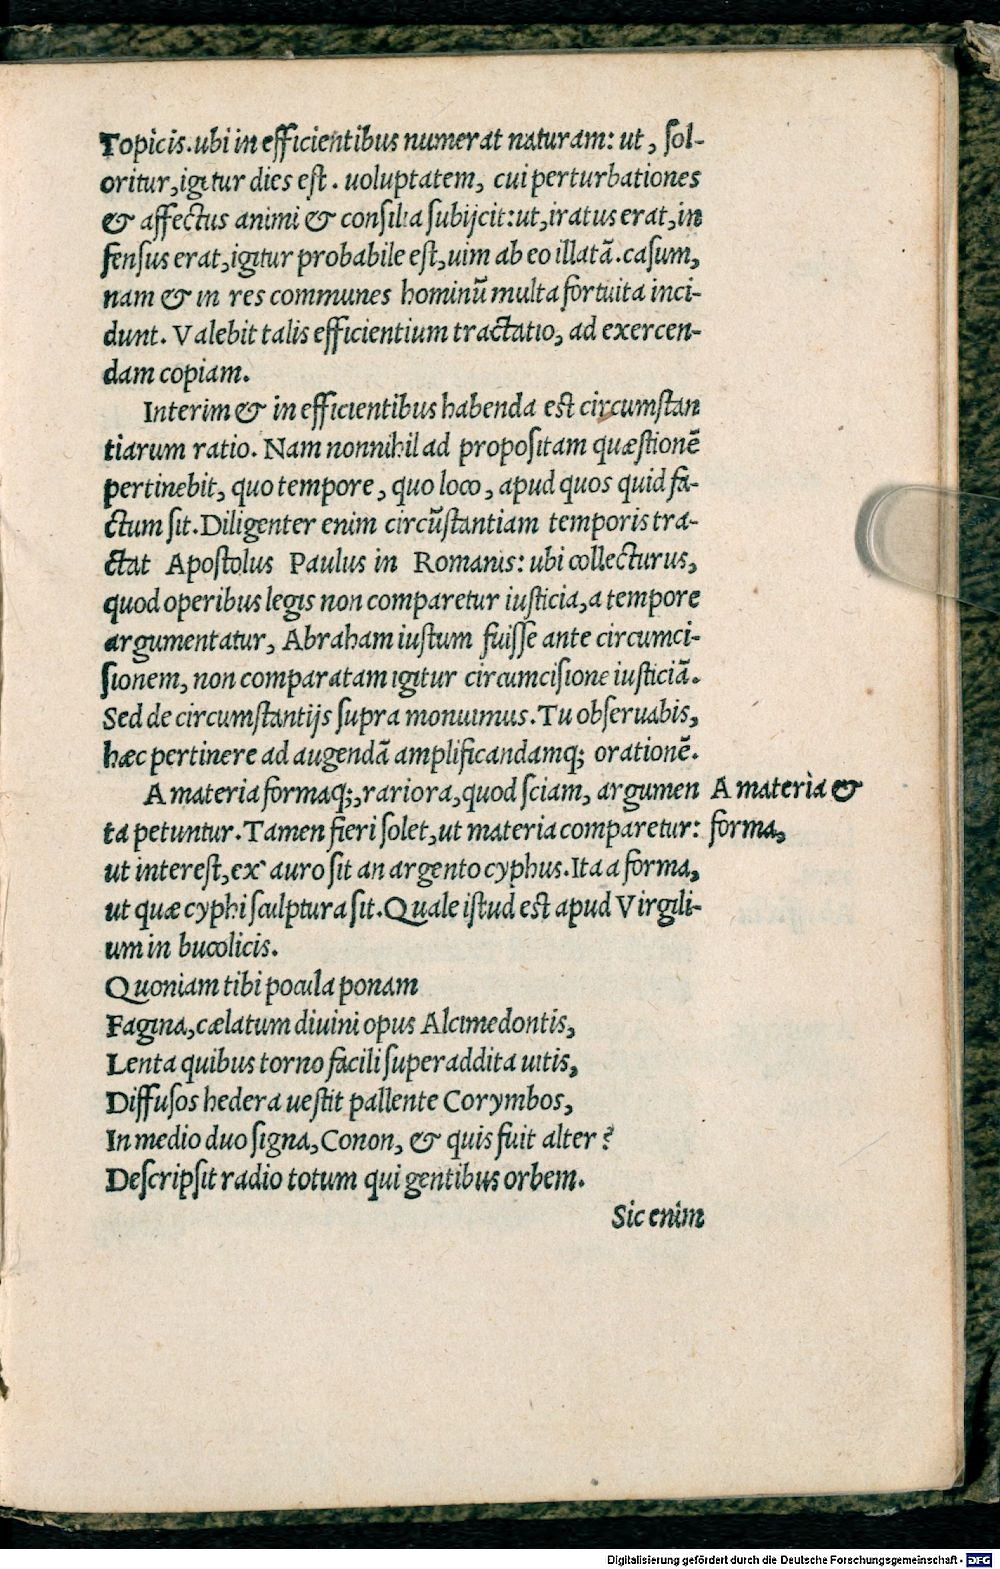 Topicis. ubi in efficientibus numerat naturam: ut, sol-
oritur, igitur dies est. uoluptatem, cui perturbationes
& affectus animi & consilia subijcit: ut, iratus erat, in
fensus erat, igitur probabile est, uim ab eo illatā. casum,
nam & in res communes hominū multa fortuita inci-
dunt. Valebit talis efficientium tractatio, ad exercen-
dam copiam.
Interim & in efficientibus habenda est circumstan
tiarum ratio. Nam nonnihil ad propositam quæstionē
pertinebit, quo tempore, quo loco, apud quos quid fa-
ctum sit. Diligenter enim circūstantiam temporis tra-
ctat Apostolus Paulus in Romanis: ubi collecturus,
quod operibus legis non comparetur iusticia, a tempore
argumentatur, Abraham iustum fuisse ante circumci-
sionem, non comparatam igitur circumcisione iusticiā.
Sed de circumstantijs supra monuimus. Tu obseruabis,
hæc pertinere ad augendā amplificandamq; orationē.
A materia formaq;, rariora, quod sciam, argumen
ta petuntur. Tamen fieri solet, ut materia comparetur:
ut interest, ex auro sit an argento cyphus. Ita a forma,
ut quæ cyphi sculptura sit. Quale istud est apud Virgili-
um in bucolicis.
Quoniam tibi pocula ponam
Fagina, cælatum diuini opus Alcimedontis,
Lenta quibus torno facili superaddita uitis,
Diffusos hedera uestit pallente Corymbos,
In medio duo signa, Conon, & quis fuit alter?
Descripsit radio totum qui gentibus orbem.
Sic enim
A materia &
forma,
Digitalisierung gefördert durch die Deutsche Forschungsgemeinschaft - DFG